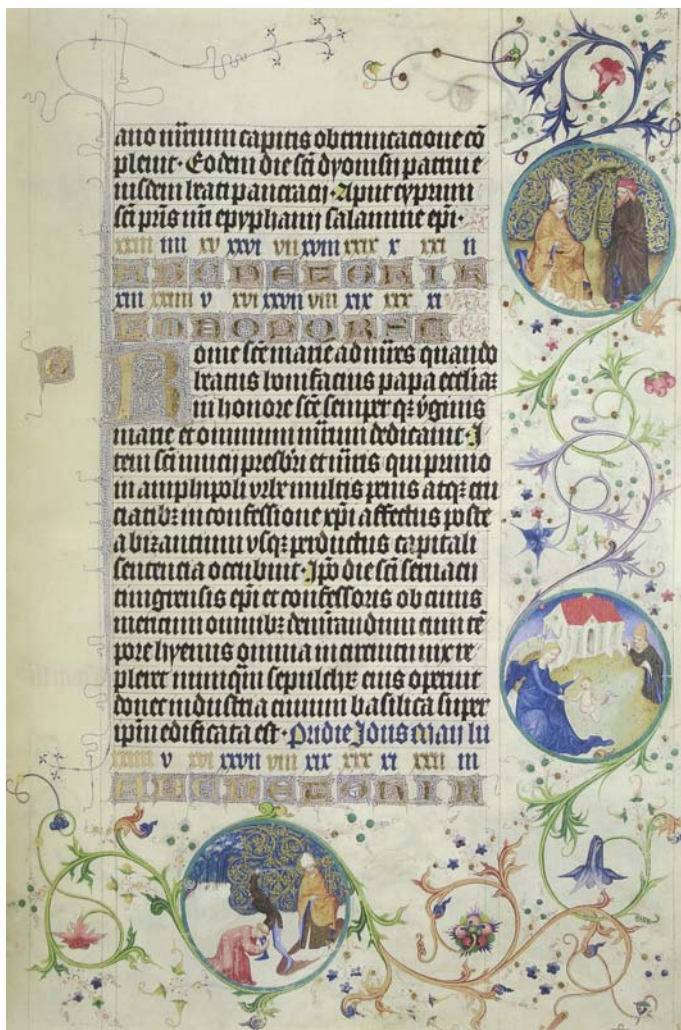 auo mr̄ium capitis obtruncacione cō
pleuit · Eodem die sc̄i dyonisij patrui e
iusdem beati pancracij · Aput cyprum
sc̄i pr̄is nr̄i epyphanij salamine ep̄i ·
xxiii iiii xv xxvi vii xviii xxix x xxi ii
A B C D E F G H I K
xiii xxiiii v xvi xxvii viii xix xxx xi
L M N O P Q R S T
Rome sc̄e marie ad mr̄es quando
beatus bonifacius papa eccliaꝫ
in honore sc̄e semper qꝫ v̇ginis
marie et omnium mr̄um dedicauit · I
tem sc̄i mucij presbr̄i et mr̄is qui primo
in amphipoli vrbe multis penis atqꝫ cru
ciatibꝫ in confessione xp̄i affectus poste
a bizantium vsqꝫ perductus capitali
sentencia occubuit · Ip̄o die sc̄i seruacij
tingrensis ep̄i et confessoris ob cuius
meritum omnibꝫ demr̄andum cum tē
pore hyemis omnia in circuitu nix re
pleret nunqūi sepulchꝝ eius operuit
donec industria ciuium basilica super
ip̄m edificata est · Pridie Idus Maij lu
xxiiii v xvi xxvii viii xix xxx xi xxii iii
A B C D E F G H I K